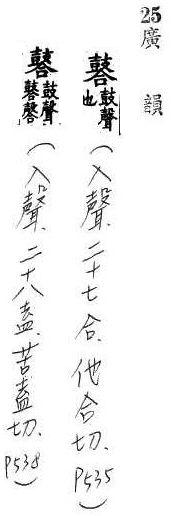 25廣韻
鼓聲也(入聲.二十七合.他合切.P535)
鼓聲(入聲.二十八盍.苦盍切.P538)